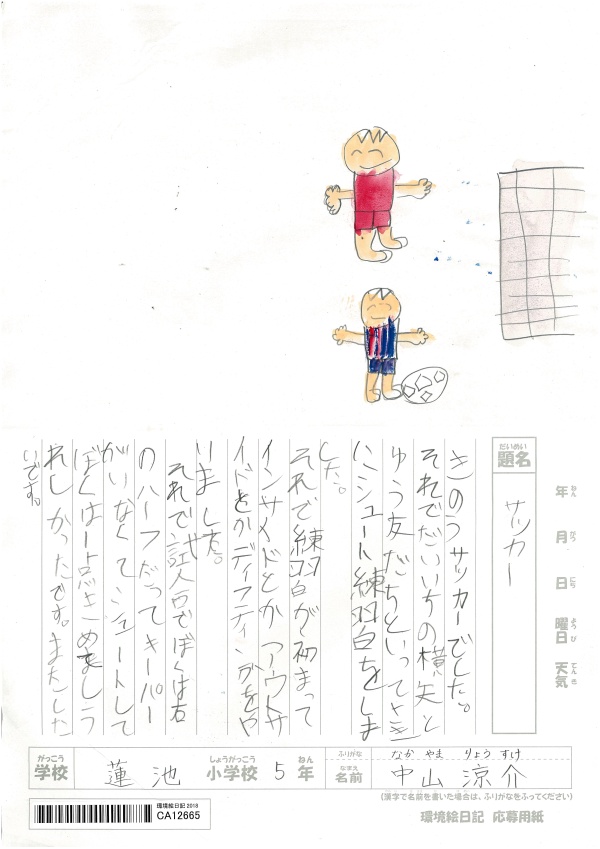 だいめい
題名
サッカー
年 ねん
月 がつ
日 にち
曜日 ようび
天気 てんき
きのうサッカーでした。
それでだいいちの横矢と
ゆう友だちといってさき
にシュート練習をしま
した。
それで練習が初まって
インサイドとかアウトサ
イドとかディフティンがをや
いました。
それで試合でぼくは右
のハーフだってキーパー
がいなくてシュートして
ぼくは一点きめましう
れしかったです。またした
いです。
がっこう
学校
蓮池
しょうがっこう
小学校
5
ねん
年
ふりがな
なか やま りょう すけ
なまえ
名前
中山涼介
(漢字で名前を書いた場合は、ふりがなをふってください)
環境絵日記 2018
CA12665
環境絵日記 応募用紙